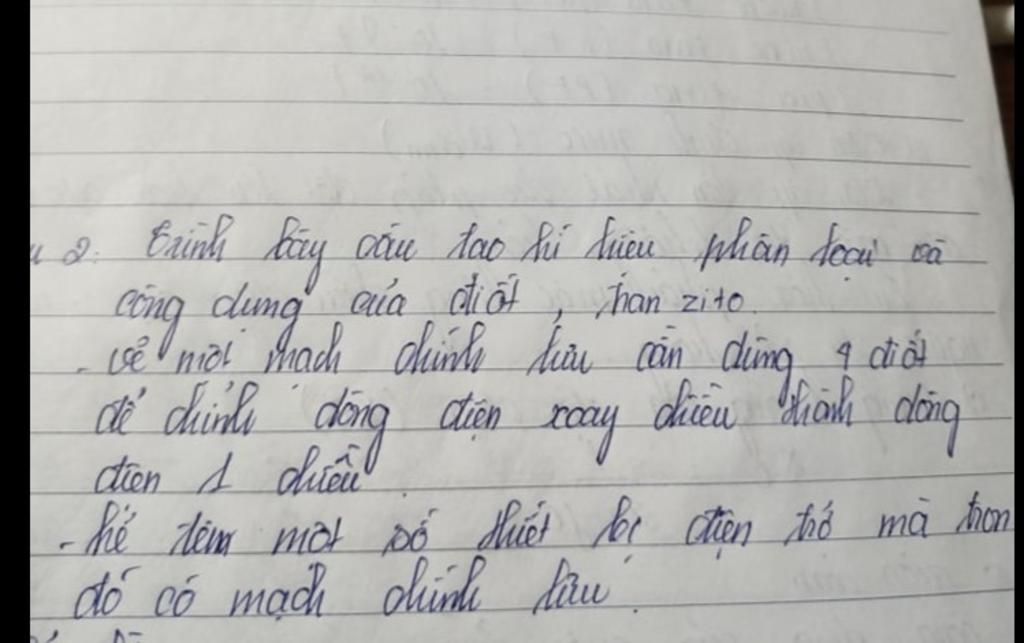 u 2. Trình bày cấu tạo kí hiệu phân loại và
công dụng của điốt, tran zito.
- vẽ một mạch chỉnh lưu cần dùng 4 điốt
để chỉnh dòng điện xoay chiều thành dòng
điện 1 chiều.
- kể tên một số thiết bị điện tử mà tron
đó có mạch chỉnh lưu.